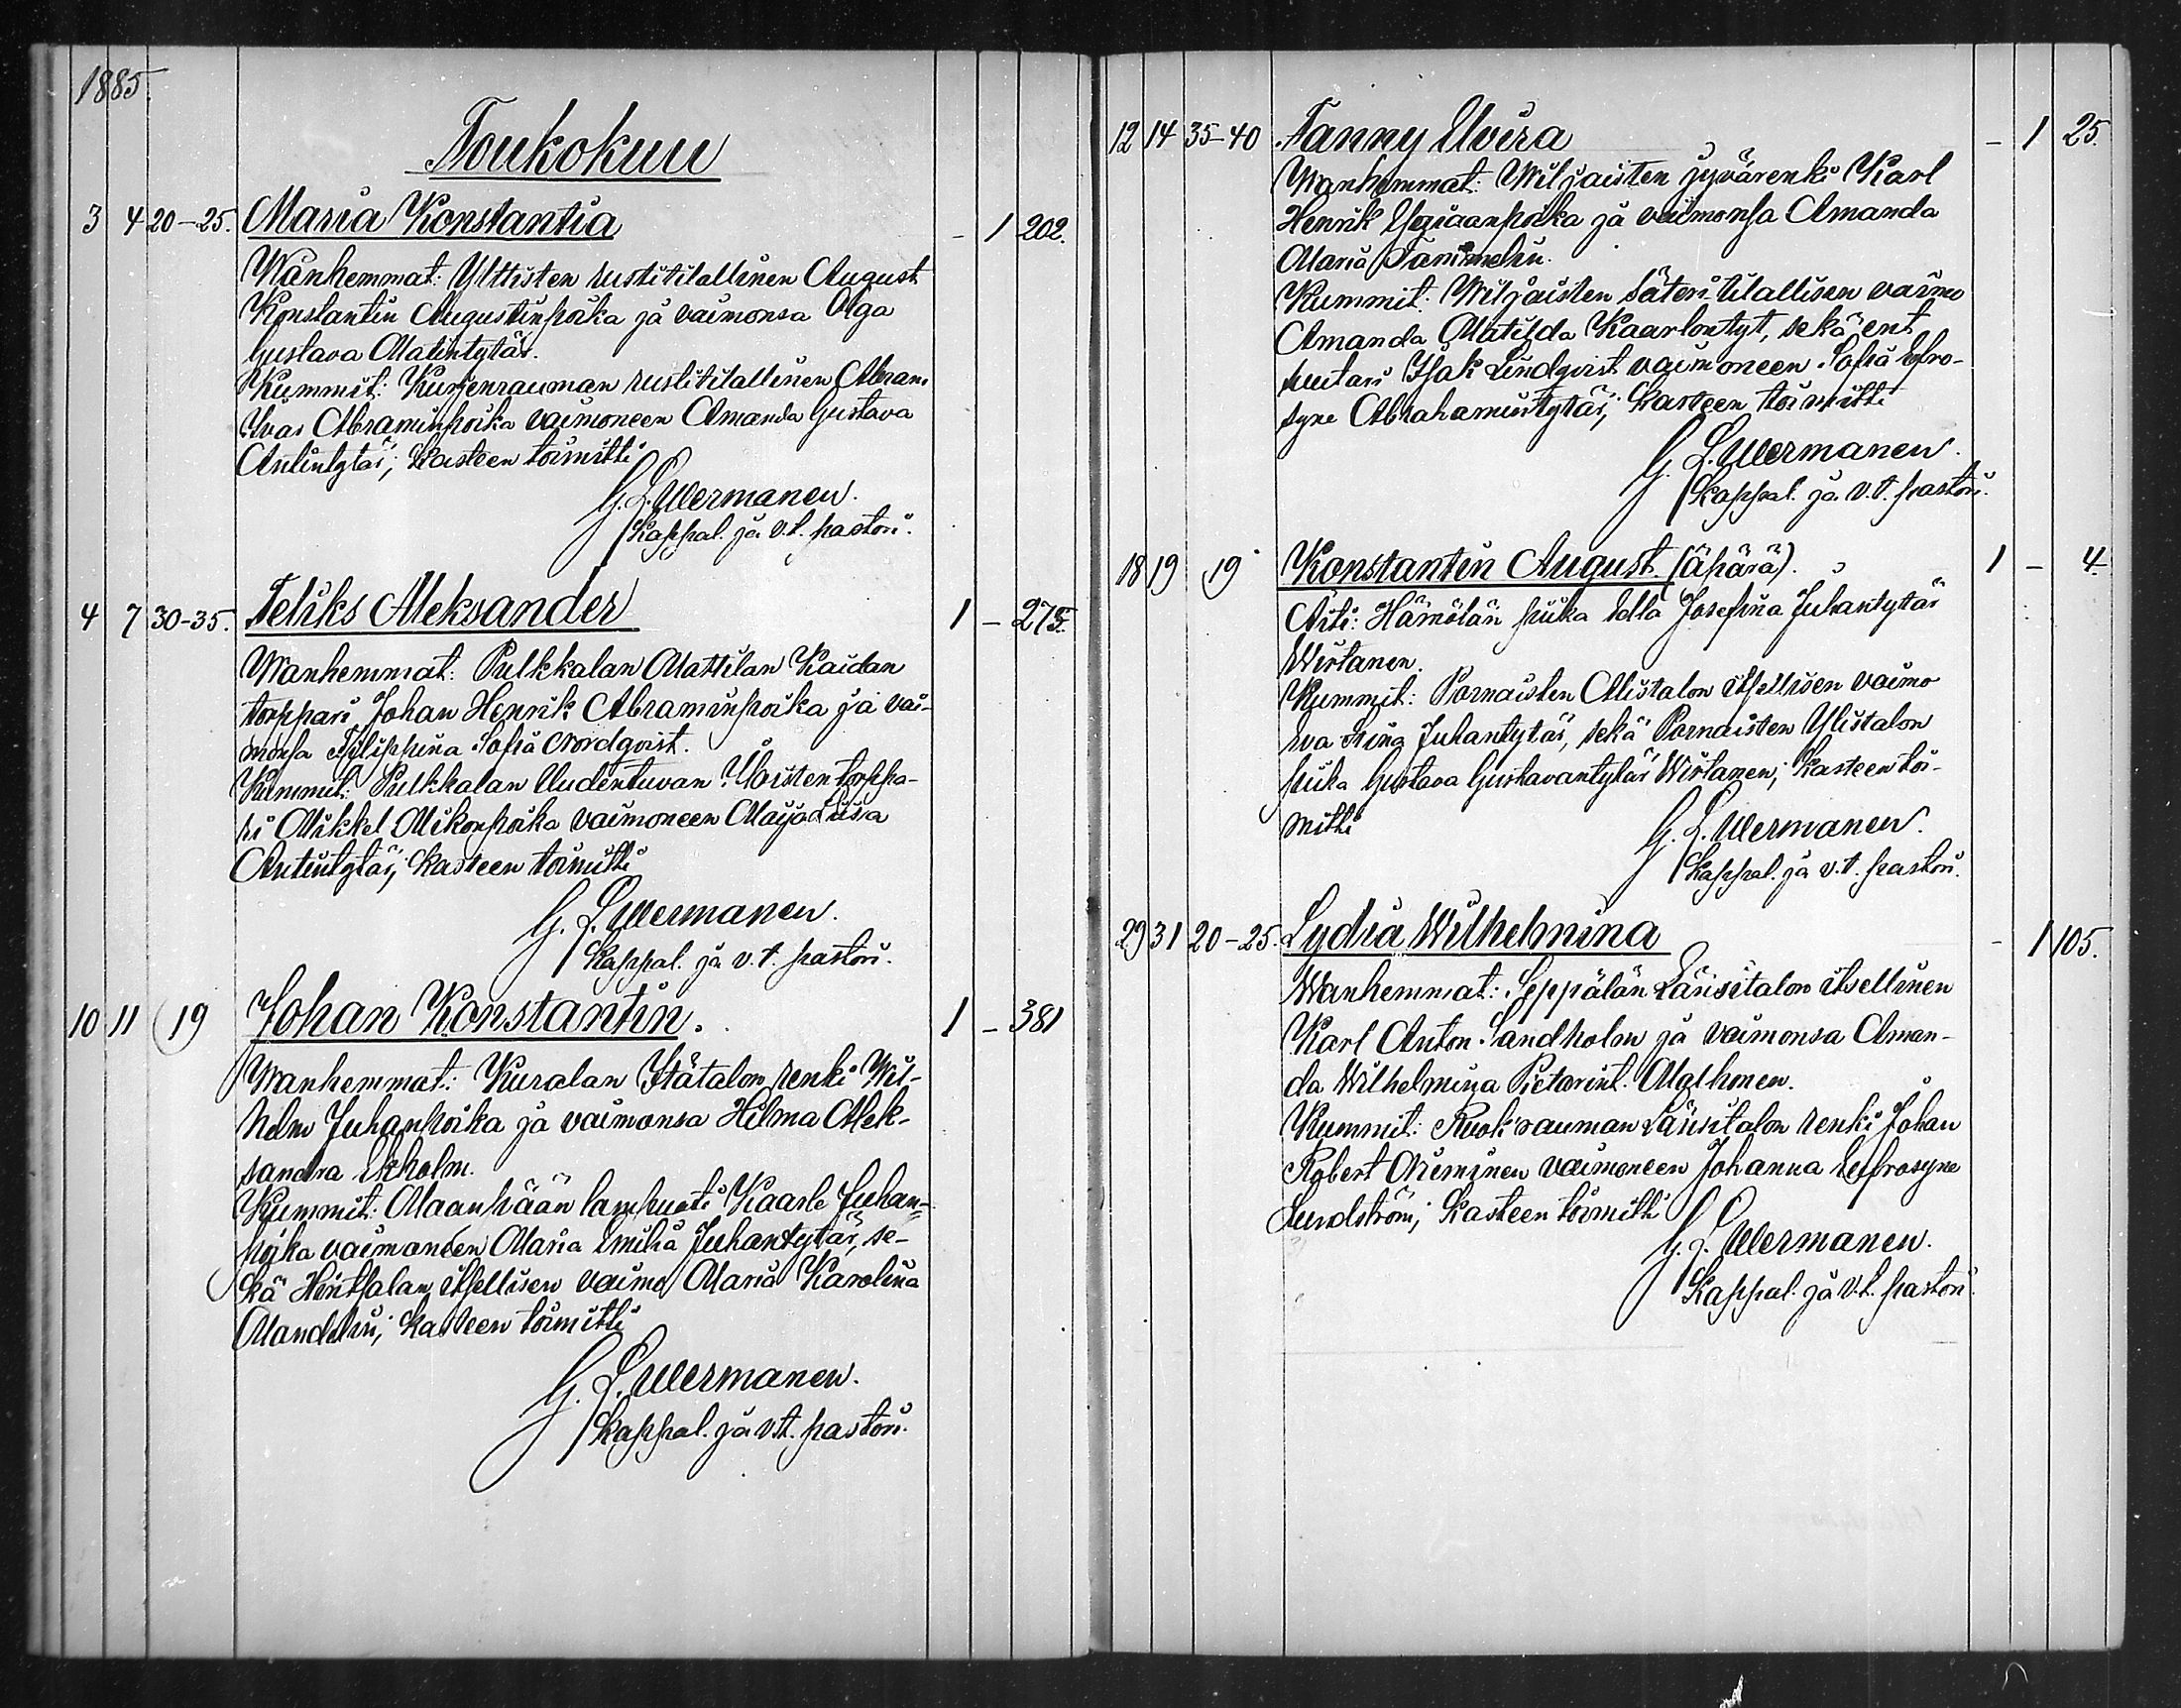 1885.
Toukokuu
3 4 20-25. Maria Konstantia - 1 202.
Wanhemmat: Ylttisten rustitilallinen August
Konstantin Augustinpoika ja vaimonsa Olga
Gustava Matintytär.
Kummit: Kurjenrauman rustitilallinen Abram
Ivar Abraminpoika vaimoneen Amanda Gustava
Antintytär; Kasteen toimitti
G. L. Wermanen.
Kappal. ja v.t. pastori.
4 7 30-35. Feliks Aleksander 1 - 275.
Wanhemmat: Pulkkalan Mattilan Kaidan
torppari Johan Henrik Abraminpoika ja vai-
monsa Filippina Sofia Nordqvist.
Kummit: Pulkkalan Uudentuvan torppa-
ri Mikkel Mikonpoika vaimoneen Maija Liisa
Antintytär; Kasteen toimitti
G. L. Wermanen.
Kappal. ja v.t. pastori.
10 11 19 Johan Konstantin. 1 - 381
Wanhemmat: Kuralan Itätalon renki Wil-
helm Juhanpoika ja vaimonsa Hilma Alek-
sandra Ekholm.
Kummit: Maanpään lampuoti Kaarle Juhan-
poika vaimoneen Maria Emilia Juhantytär, se-
kä Hintsalan itsellisen vaimo Maria Karolina
Mandelin; Kasteen toimitti
G. L. Wermanen.
Kappal. ja v.t. pastori.
12 14 35-40 Fanny Elvira - 1 25.
Wanhemmat: Wiljaisten jyvärenki Karl
Henrik Yrjäänpoika ja vaimonsa Amanda
Maria Tammelin.
Kummit: Wiljaisten säteritilallisen vaimo
Amanda Matilda Kaarlontyt, sekä ent.
Isak Lindqvist vaimoneen Sofia Eufro-
syne Abrahamintytär; Kasteen toimitti
G. L. Wermanen.
Kappal. ja v.t. pastori.
18 19 19 Konstantin August. (äpärä). 1 - 4.
Äiti: Hämölän piika Edla Josefina Juhantytär
Wirtanen.
Kummit: Pornaisten Alistalon itsellisen vaimo
Eva Stina Juhantytär, sekä Pornaisten Ylistalon
piika Gustava Gustavantytär Wirtanen; Kasteen toi-
mitti
G. L. Wermanen.
Kappal. ja v.t. pastori.
29 31 20-25. Lydia Wilhelmina - 1 105.
Wanhemmat: Seppälän Länsitalon itsellinen
Karl Anton Sandholm ja vaimonsa Aman-
da Wilhelmina Pietarint.
Kummit: Ruokrauman Länsitalon renki Johan
Robert Nieminen vaimoneen Johanna Eufrosyne
Lundström; Kasteen toimitti
G. L. Wermanen.
Kappal. ja v.t. pastori.